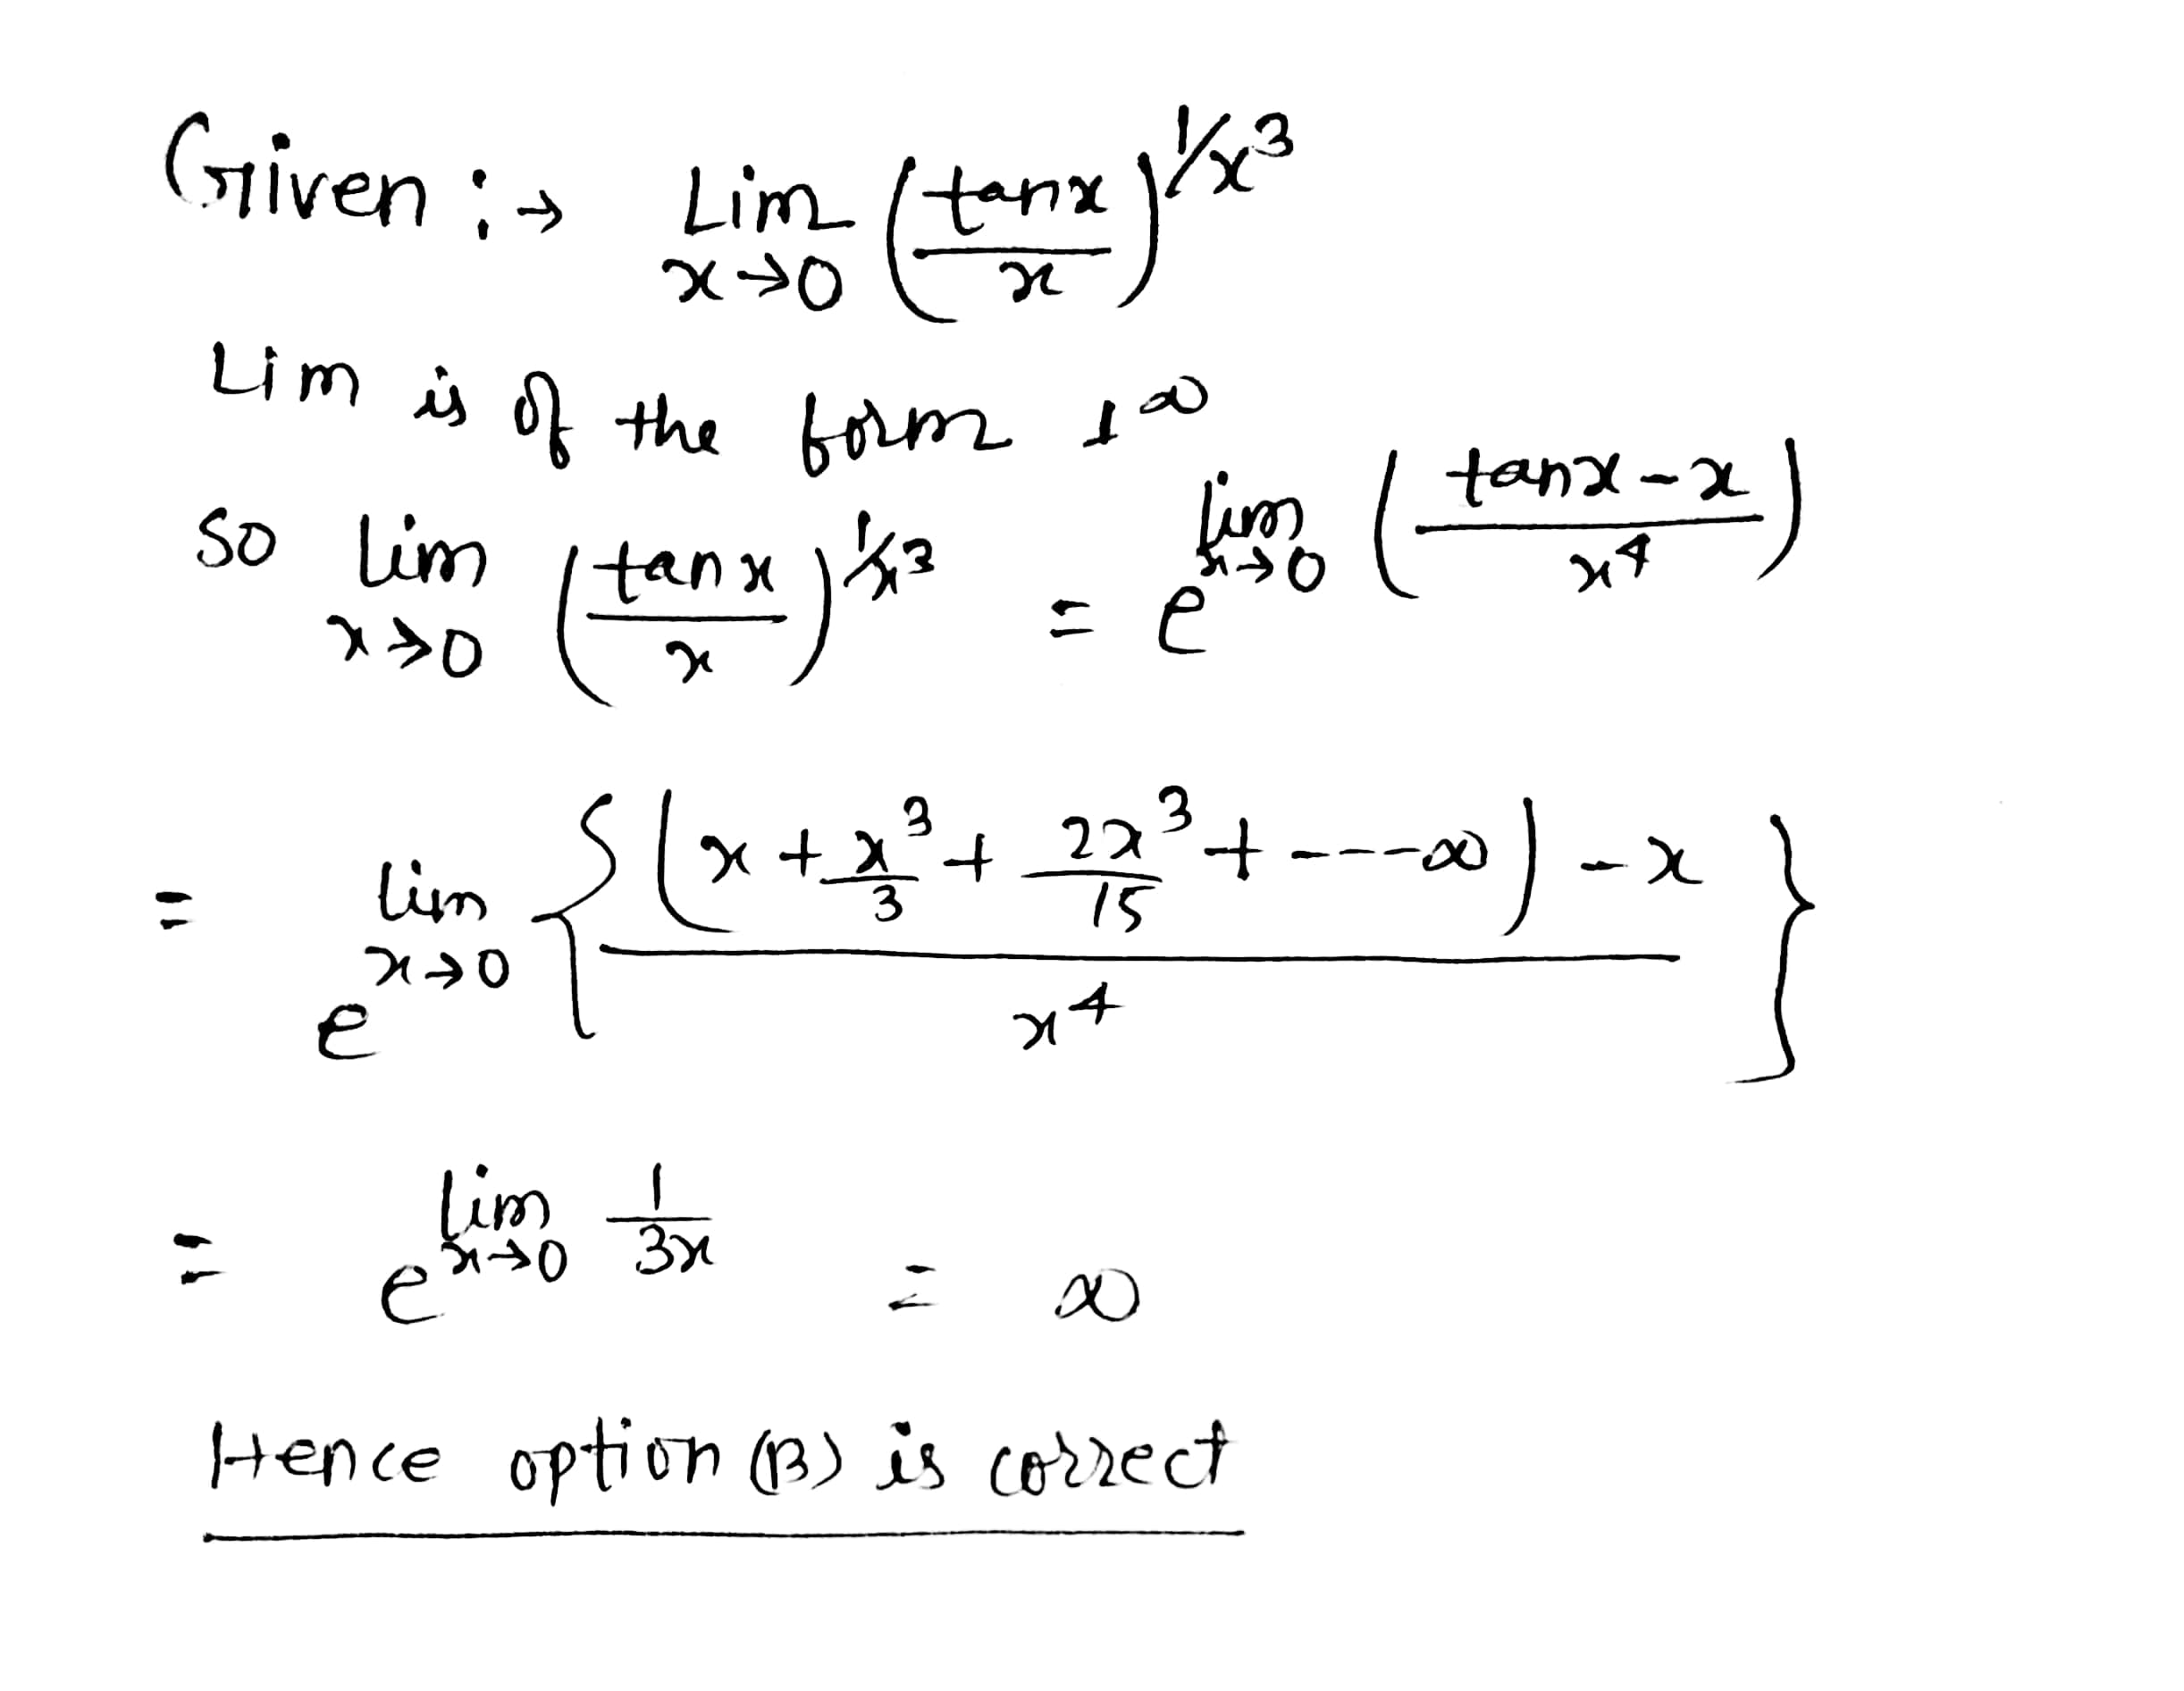 Given :→ Lim x→0 (tanx/x)^1/x^3
Lim is of the form 1^∞
so lim x→0 (tanx/x)^1/x^3 = e^lim x→0 (tanx-x/x^4)
= e^lim x→0 {(x + x^3/3 + 2x^3/15 + ----∞) - x/x^4}
= e^lim x→0 1/3x = ∞
Hence option (B) is correct